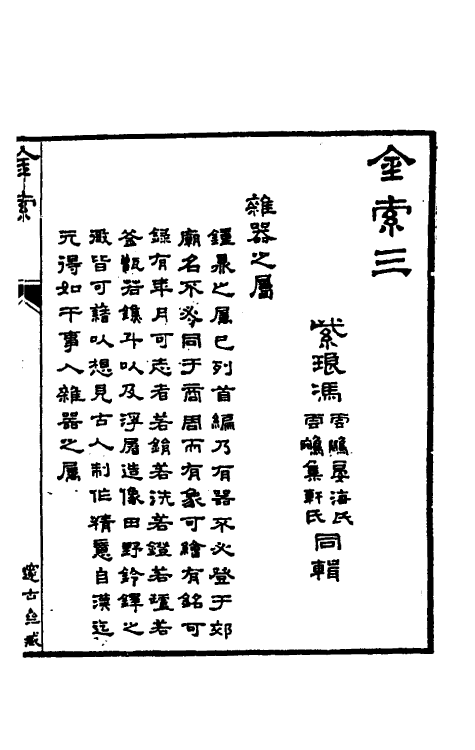 金索三
紫琅馮
雲鵬晏海氏
雲鵷集軒氏
同輯
雜器之屬
鐘鼎之屬已列首編乃有器不必登于郊
廟名不必同于商周而有象可繪有銘可
錄有年月可志者若鋗若洗若鐙若若
釜甑若鐎斗以及浮屠造像田野鈴鐸之
微皆可藉以想見古人制作精意自漢迄
元得如干事入雜器之屬
金索
邃古亝藏